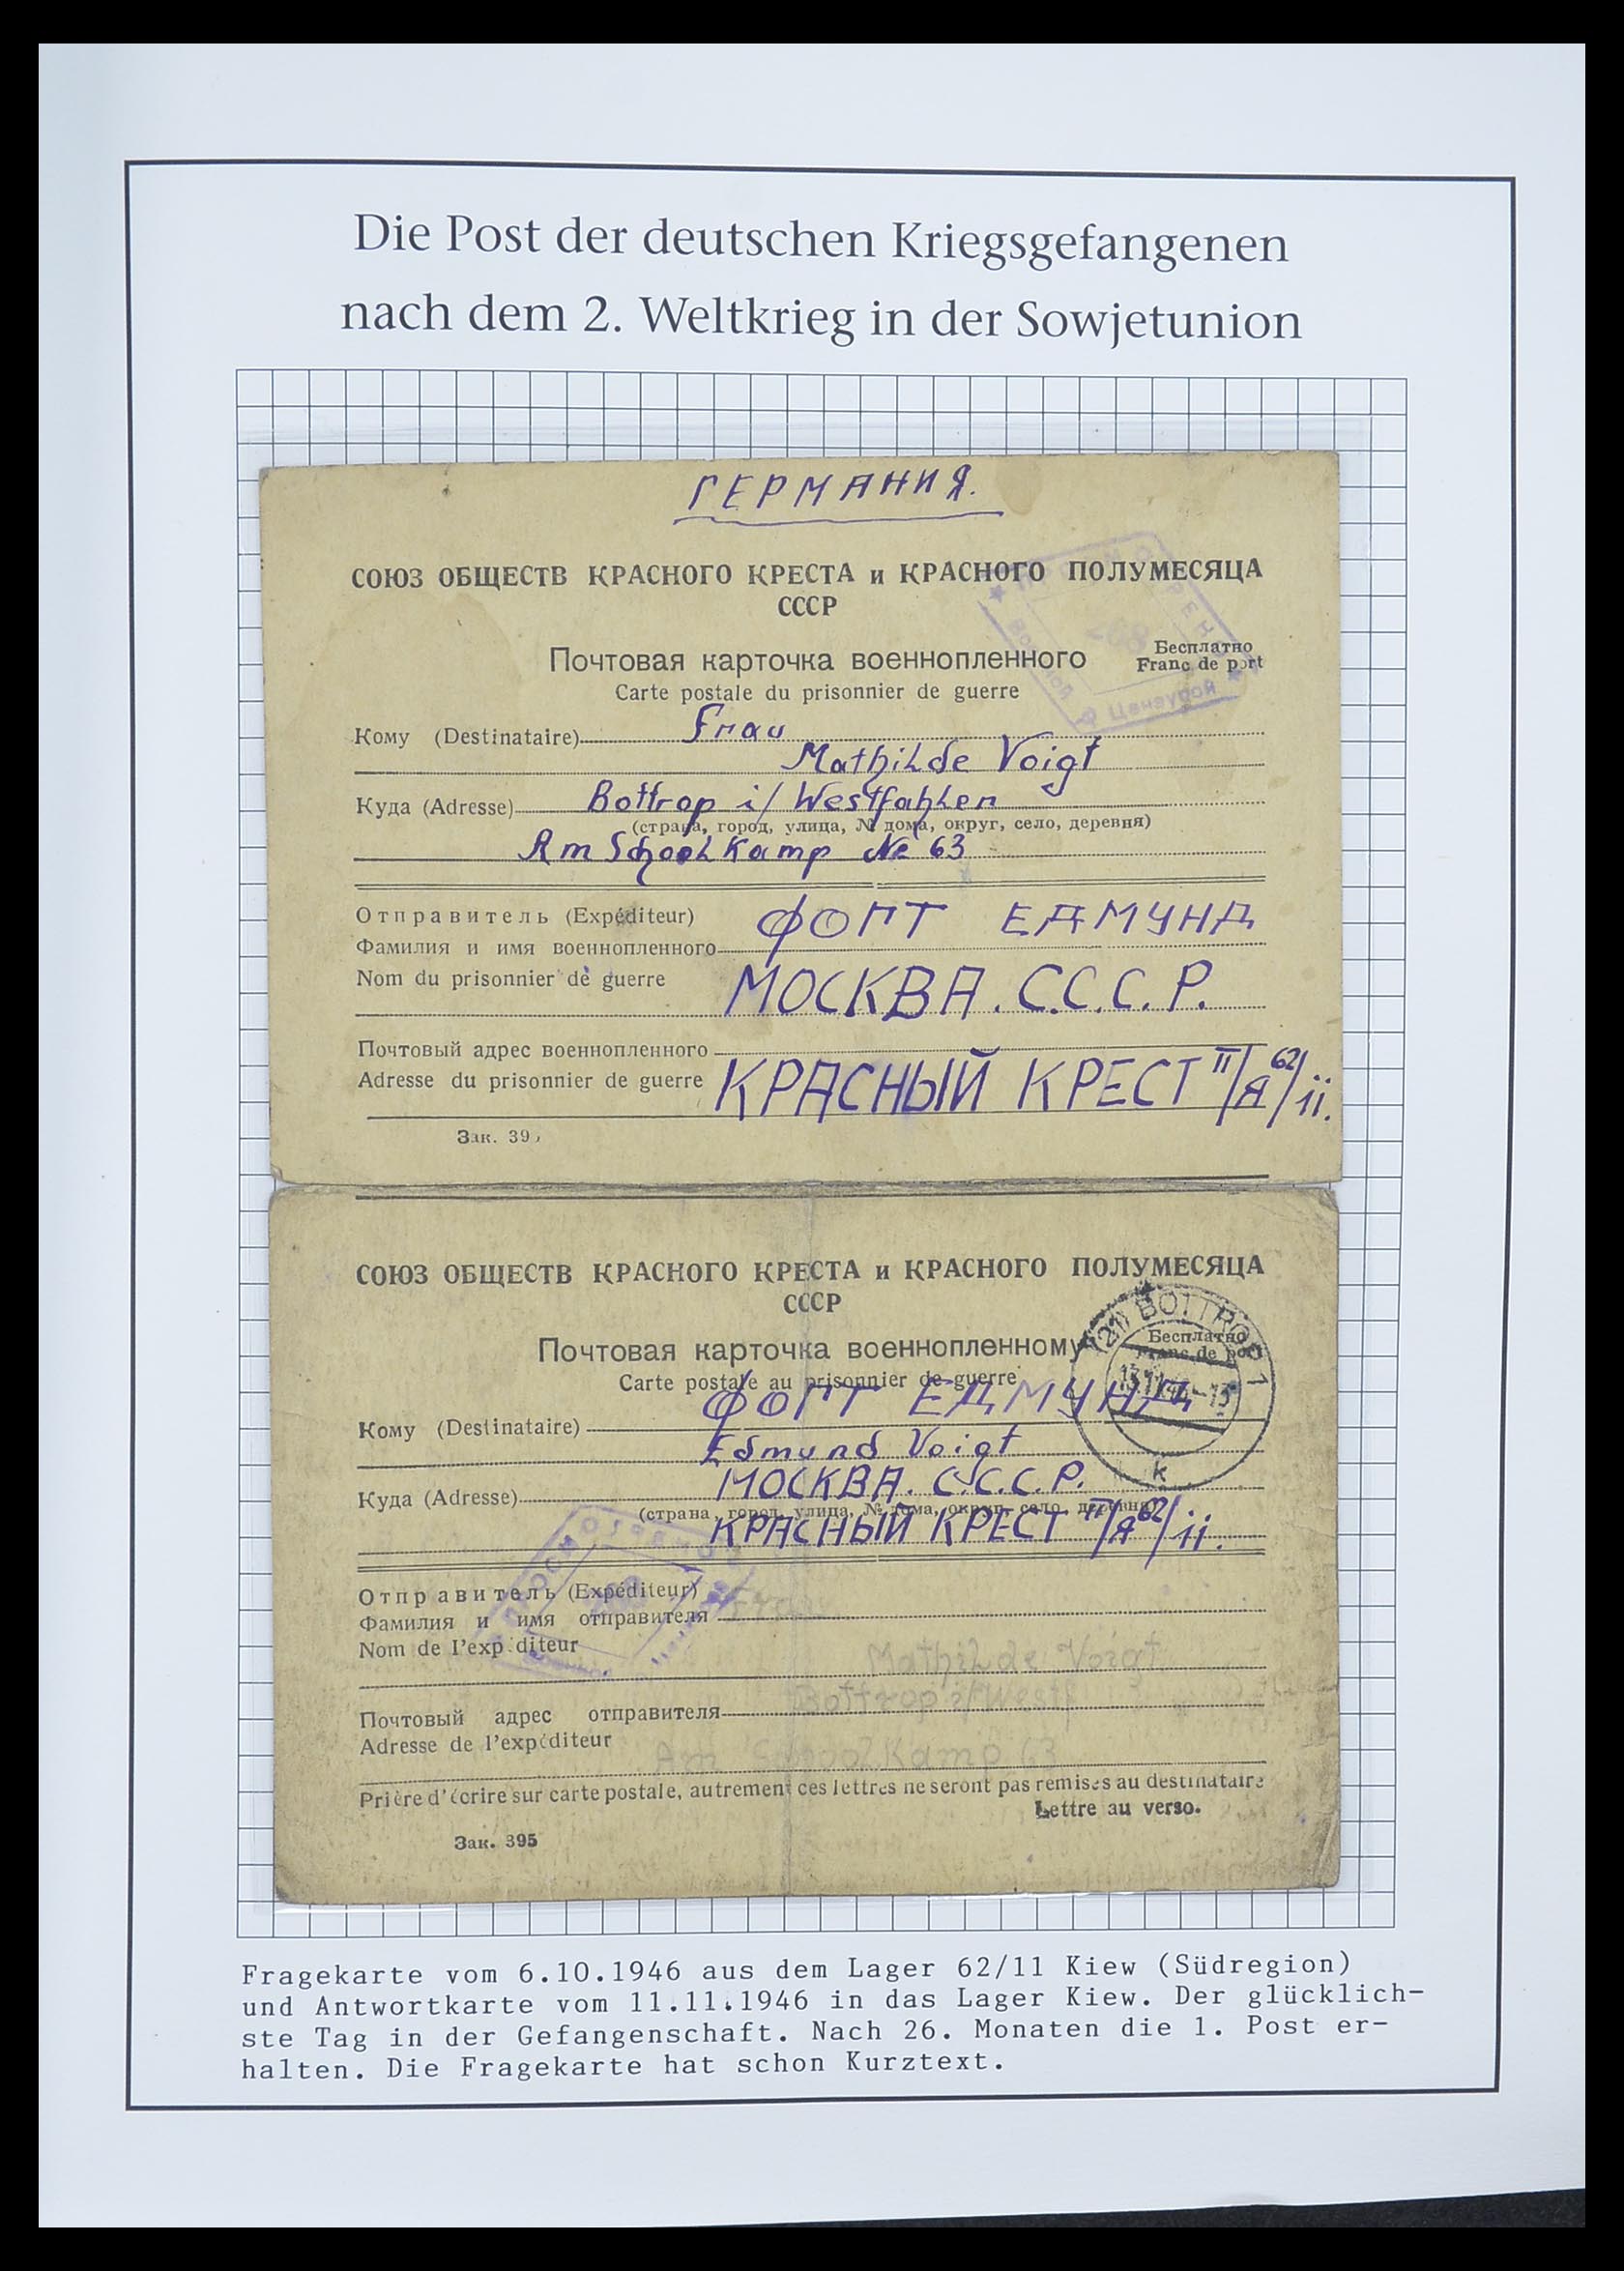 Die Post der deutschen Kriegsgefangenen
nach dem 2. Weltkrieg in der Sowjetunion
ГЕРМАНИЯ.
СОЮЗ ОБЩЕСТВ КРАСНОГО КРЕСТА и КРАСНОГО ПОЛУМЕСЯЦА
СССР
Почтовая карточка военнопленного
Бесплатно
Franc de port
Carte postale du prisonnier de guerre
Военной
Цензурой
Кому (Destinataire) Frau
Mathilde Voigt
Куда (Adresse) Bottrop i/ Westfahlen
(страна, город, улица, № дома, округ, село, деревня)
Am Schoolkamp № 63
Отправитель (Expéditeur) ФОГТ ЕДМУНД
Фамилия и имя военнопленного
Nom du prisonnier de guerre МОСКВА. С.С.С.Р.
Почтовый адрес военнопленного
Adresse du prisonnier de guerre КРАСНЫЙ КРЕСТ П/Я 62/11.
Зак. 395
СОЮЗ ОБЩЕСТВ КРАСНОГО КРЕСТА и КРАСНОГО ПОЛУМЕСЯЦА
СССР
(21) BOTTROP 1
Почтовая карточка военнопленному
Бесплатно
Franc de port
Carte postale au prisonnier de guerre
ФОГТ ЕДМУНД
Кому (Destinataire)
Edmund Voigt
k
МОСКВА. С.С.С.Р.
Куда (Adresse)
(страна, город, улица, № дома, округ, село, деревня)
КРАСНЫЙ КРЕСТ П/Я 62/11.
Отправитель (Expéditeur)
Фамилия и имя отправителя Frau
Nom de l'expéditeur
Mathilde Voigt
Bottrop i/Westf
Почтовый адрес отправителя
Adresse de l'expéditeur
Am Schoolkamp 63
Prière d'écrire sur carte postale, autrement ces lettres ne seront pas remises au destinataire
Lettre au verso.
Зак. 395
Fragekarte vom 6.10.1946 aus dem Lager 62/11 Kiew (Südregion)
und Antwortkarte vom 11.11.1946 in das Lager Kiew. Der glücklich-
ste Tag in der Gefangenschaft. Nach 26. Monaten die 1. Post er-
halten. Die Fragekarte hat schon Kurztext.